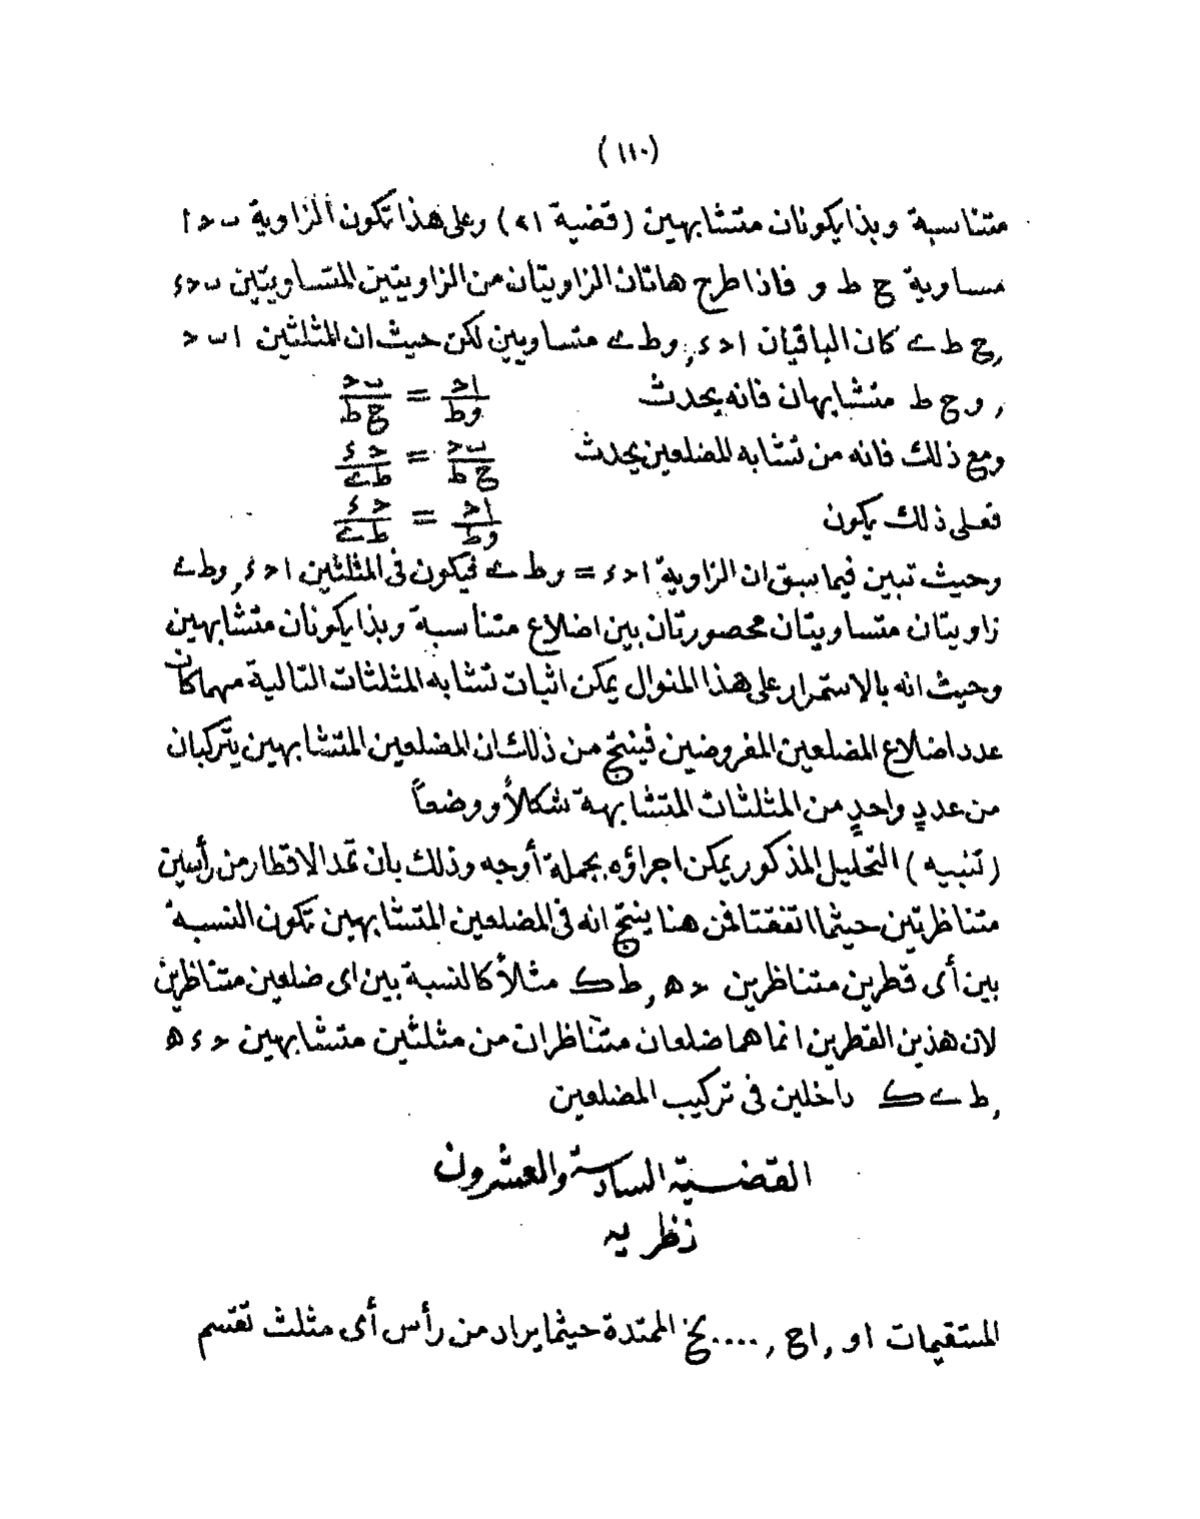 (١١٠)
متناسبة وبذا يكونان متشابهين (قضية ٢١) وعلى هذا تكون الزاوية ب ح ا
مساوية ج ط و فاذا طرح هاتان الزاويتان من الزاويتين المتساويتين ب ح ء
, ج ط ى كان الباقيان ا ح ء , و ط ى متساويين لكن حيث ان المثلثين ا ب ح
, و ج ط متشابهان فانه يحدث اح/وط = بح/جط
ومع ذلك فانه من تشابه المضلعين يحدث بح/جط = حء/طى
فعلى ذلك يكون اح/وط = حء/طى
وحيث تبين فيما سبق ان الزاوية ا ح ء = و ط ى فيكون فى المثلثين ا ح ء , و ط ى
زاويتان متساويتان محصورتان بين اضلاع متناسبة وبذا يكونان متشابهين
وحيث انه بالاستمرار على هذا المنوال يمكن اثبات تشابه المثلثات التالية مهما كان
عدد اضلاع المضلعين المفروضين فينتج من ذلك ان المضلعين المتشابهين يتركبان
من عددٍ واحدٍ من المثلثات المتشابهة شكلاً ووضعاً
(تنبيه) التحليل المذكور يمكن اجراؤه بجملة أوجه وذلك بان تمد الاقطار من رأسين
متناظرتين حيثما اتفقتا فمن هنا ينتج انه فى المضلعين المتشابهين تكون النسبة
بين أى قطرين متناظرين ح ه , ط ك مثلاً كالنسبة بين اى ضلعين متناظرين
لان هذين القطرين انما هما ضلعان متناظران من مثلثين متشابهين ح ء ه
, ط ى ك داخلين فى تركيب المضلعين
القضية السادسة والعشرون
نظريه
المستقيمات او , اج , .... الخ الممتدة حيثما يراد من رأس أى مثلث تقتسم